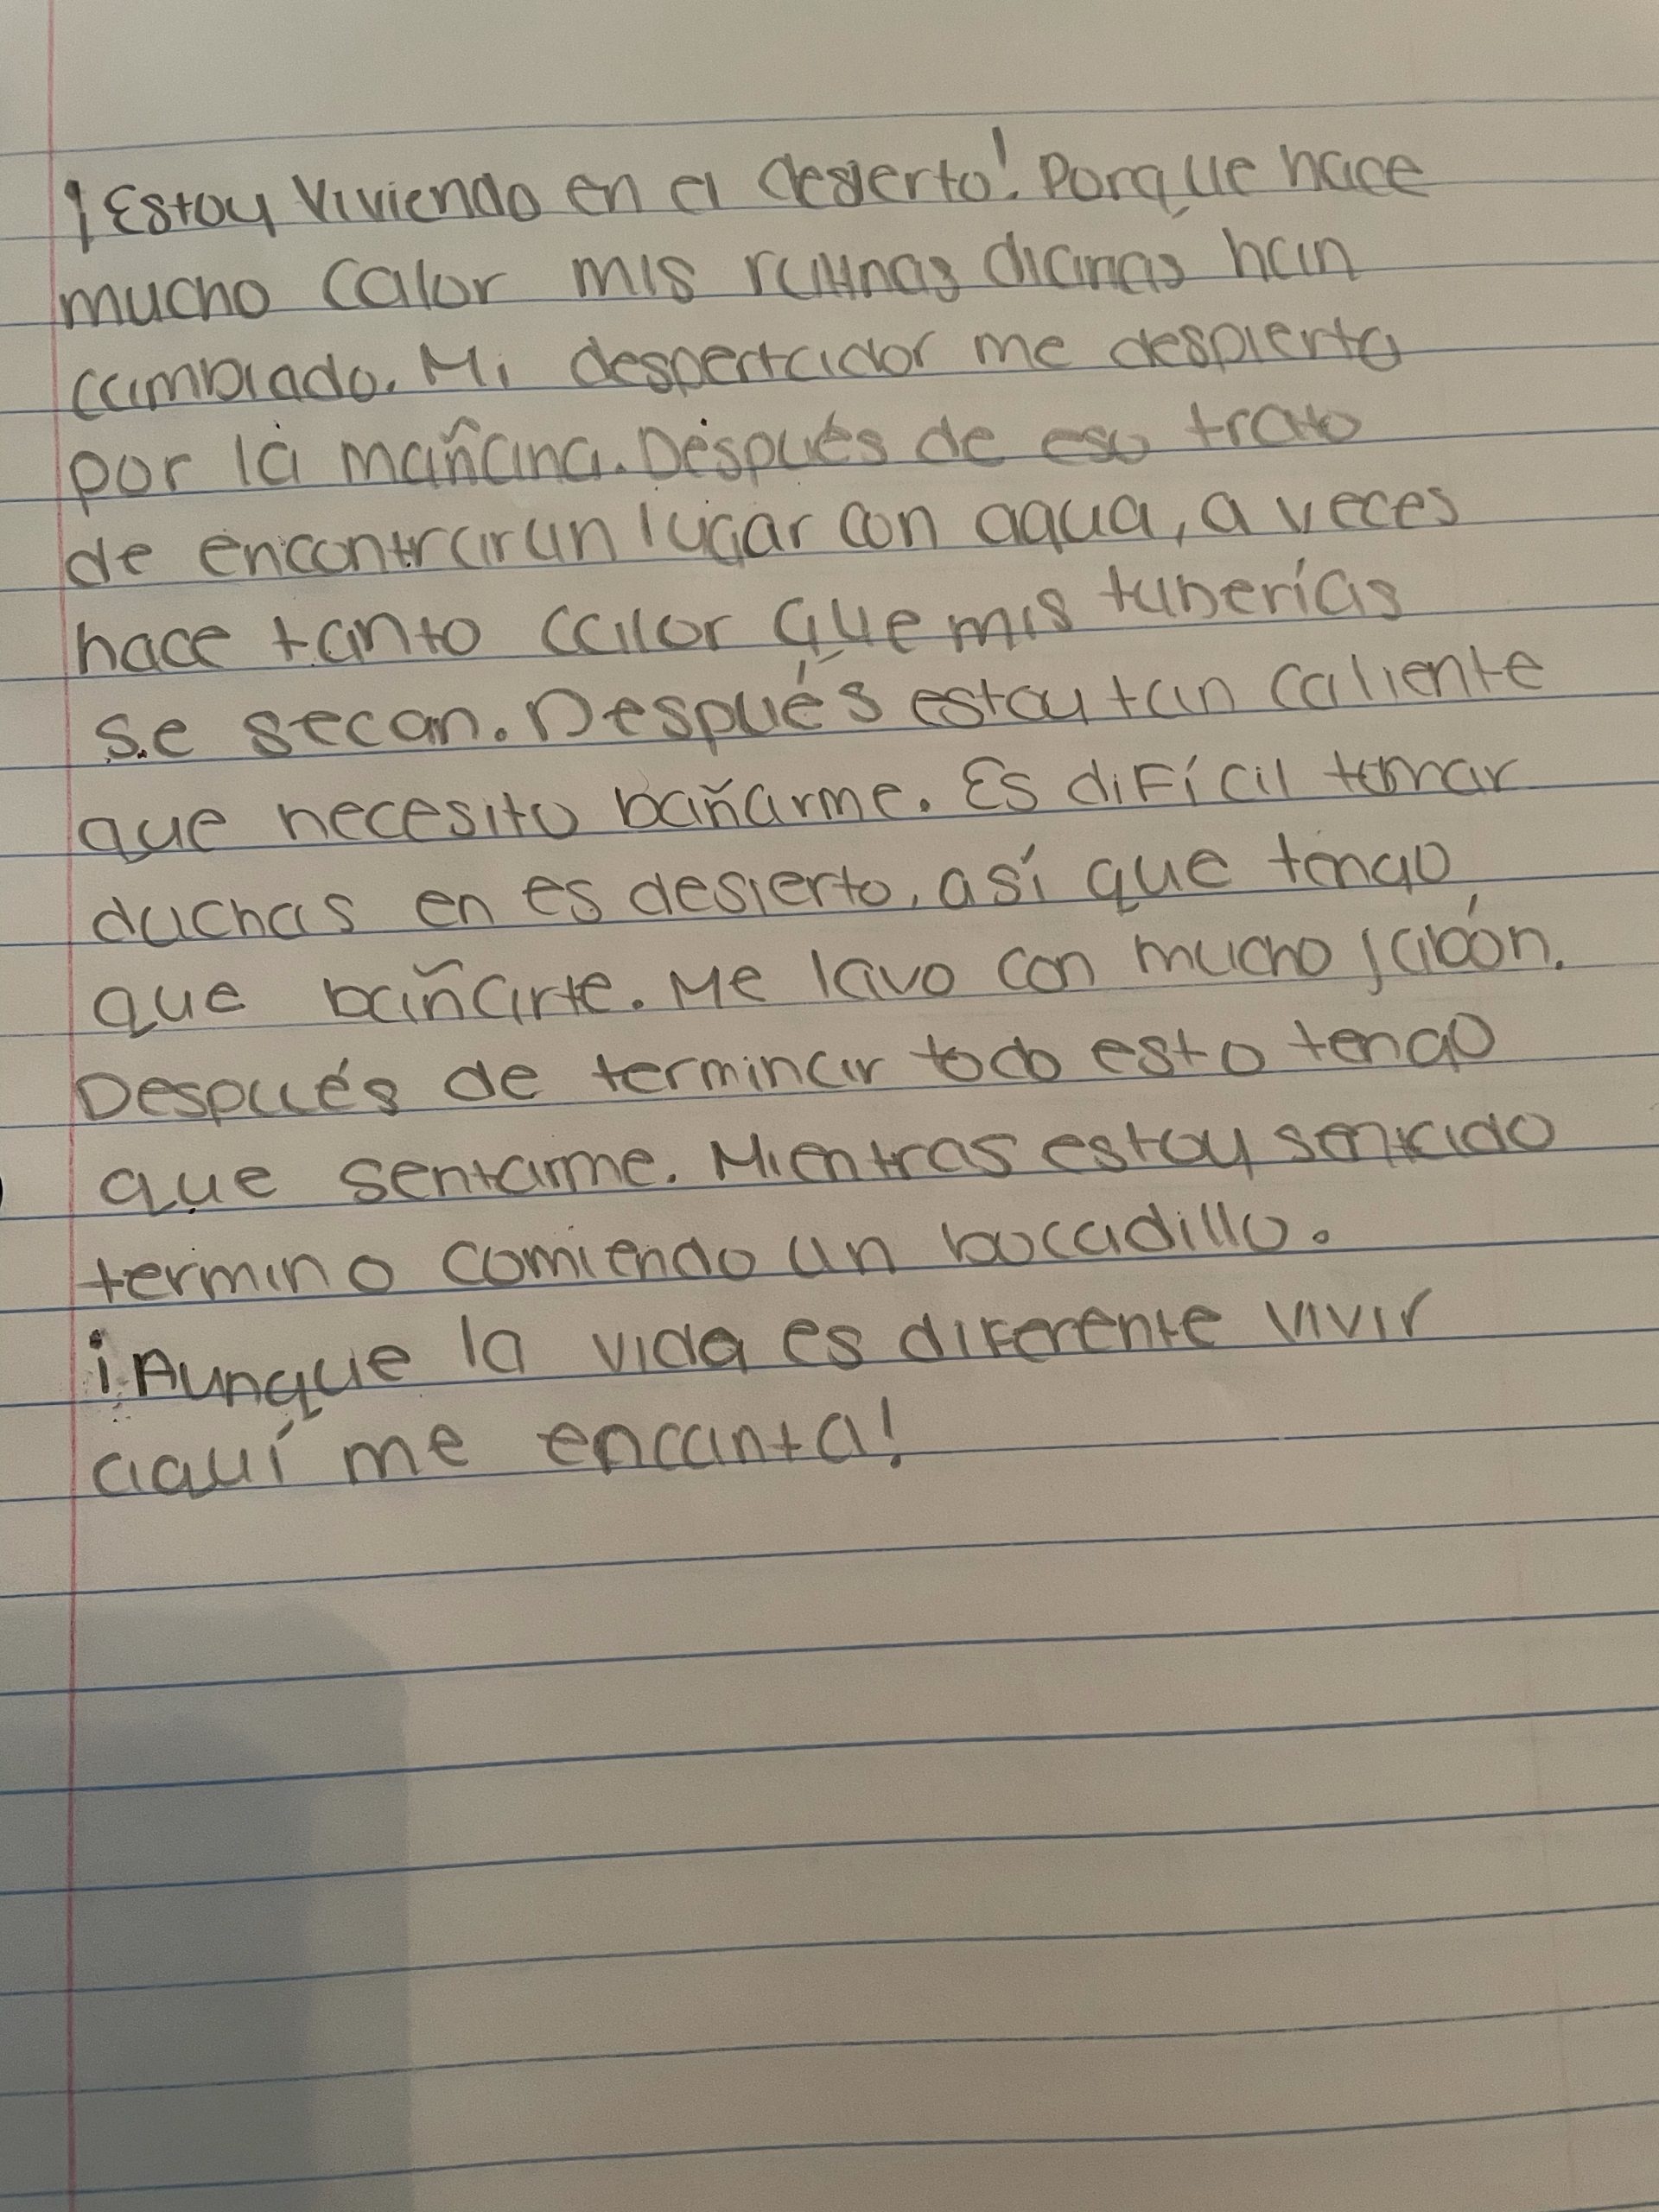 ¡Estoy Viviendo en el desierto! Porque hace
mucho calor mis rutinas diarias han
cambiado. Mi despertador me despierta
por la mañana. Después de eso trato
de encontrar un lugar con agua, a veces
hace tanto calor que mis tuberías
se secan. Después estoy tan caliente
que necesito bañarme. Es difícil tomar
duchas en es desierto, así que tengo
que bañarte. Me lavo con mucho jabón.
Después de terminar todo esto tengo
que sentarme. Mientras estoy sentado
termino comiendo un bocadillo.
¡Aunque la vida es diferente vivir
aquí me encanta!